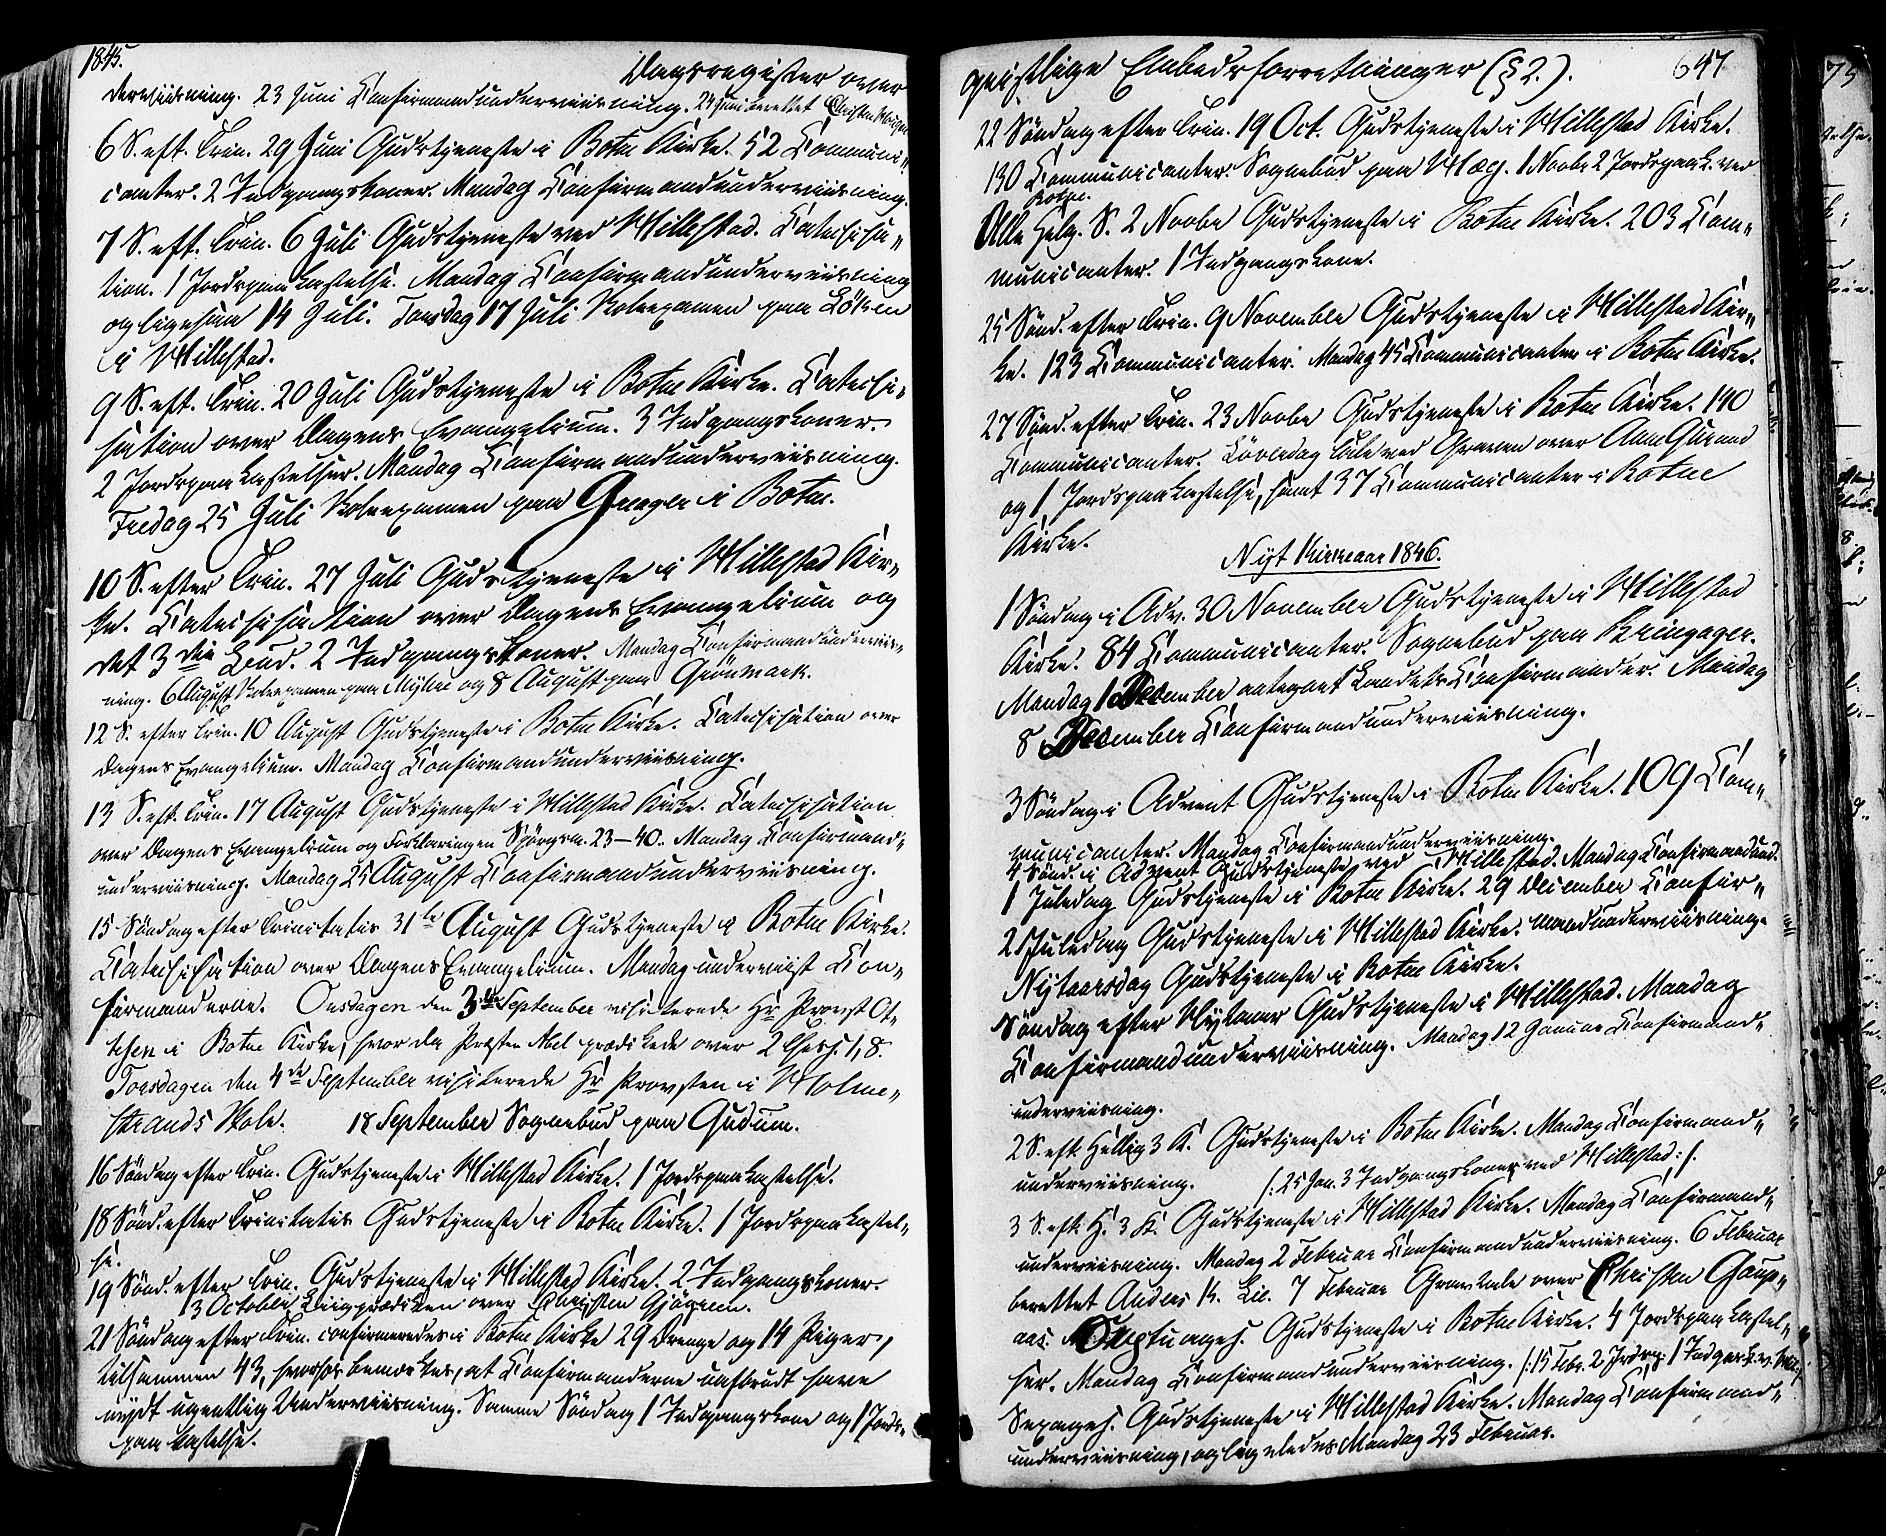 1845.
Dagsregister over
derviisning. 23 Juni Confirmandunderviisning. 24 Juni berettet Christen
6 S. eft. Trin. 29 Juni Gudstjeneste i Botne Kirke. 52 Communi„
canter. 2 Indgangskoner. Mandag Confirmandunderviisning.
7 S. eft. Trin. 6 Juli Gudstjeneste ved Hillestad. Catechisa„
tion. 1 Jordspaakastelse. Mandag Confirmandunderviisning
og ligesaa 14 Juli. Torsdag 17 Juli Skoleexamen paa Löken
i Hillestad.
9 S. eft. Trin. 20 Juli Gudstjeneste i Botne Kirke. Catechi„
sation over Dagens Evangelium. 3 Indgangskoner.
2 Jordspaakastelser. Mandag Confirmandunderviisning.
Fredag 25 Juli Skoleexamen paa Greager i Botne.
10 S. efter Trin. 27 Juli Gudstjeneste i Hillestad Kir„
ke. Catechisation over Dagens Evangelium og
det 3die Bud. 2 Indgangskoner. Mandag Confirmandunderviis„
ning. 6 August Skoleexamen paa Myhre og 8 August paa Grönmark.
12 S. efter Trin. 10 August Gudstjeneste i Botne Kirke. Catechisation over
Dagens Evangelium. Mandag Confirmandunderviisning.
13 S. eft. Trin. 17 August Gudstjeneste i Hillestad Kirke. Catechisation
over Dagens Evangelium og Forklaringen Spörgsm. 23–40. Mandag Confirmand„
underviisning. Mandag 25 August Confirmandunderviisning.
15 Söndag efter Trinitatis 31te August Gudstjeneste i Botne Kirke.
Catechisation over Dagens Evangelium. Mandag underviist Con„
firmanderne. Onsdagen den 3die September visiterede Hr Provst Ot„
tesen i Botne Kirke, hvor da Præsten Abel prædikede over 2 Thess. 1, 8.
Torsdagen den 4de September visiterede Hr Provsten i Holme„
strands Skole. 18 September Sognebud paa Gudum.
16 Söndag efter Trin. Gudstjeneste i Hillestad Kirke. 1 Jordspaakastelse.
18 Sönd. efter Trinitatis Gudstjeneste i Botne Kirke. 1 Jordspaakastel„
se.
19 Sönd. efter Trin. Gudstjeneste i Hillestad Kirke. 2 Indgangskoner.
13 October Liigprædiken over Christen Gjögren.
21 Söndag efter Trin. confirmeredes i Botne Kirke 29 Drenge og 14 Piger,
tilsammen 43, hvorfor bemærkes, at Confirmanderne uafbrudt have
nydt ugentlig Underviisning. Samme Söndag 1 Indgangskone og 1 Jords„
paakastelse.
geistlige Embedsforretninger (§ 2.). 647
22 Söndag efter Trin. 19 Oct. Gudstjeneste i Hillestad Kirke.
130 Communicanter. Sognebud paa Hæg. 1 Novbr 2 Jordspaak. ved
Botne.
Alle Helg. S. 2 Novbr Gudstjeneste i Botne Kirke. 203 Com„
municanter. 1 Indgangskone.
25 Sönd. efter Trin. 9 November Gudstjeneste i Hillestad Kir„
ke. 123 Communicanter. Mandag 45 Communicanter i Botne Kirke.
27 Sönd. efter Trin. 23 Novbr Gudstjeneste i Botne Kirke. 140
Communicanter. Löverdag Tale ved Graven over Anne Gurand
og 1 Jordspaakastelse, samt 37 Communicanter i Botne
Kirke.
Nyt Kirkeaar 1846.
1 Söndag i Adv. 30 November Gudstjeneste i Hillestad
Kirke. 84 Communicanter. Sognebud paa Bringager.
Mandag 1 December antegnet Landets Confirmander. Mandag
8 December Confirmandunderviisning.
3 Söndag i Advent Gudstjeneste i Botne Kirke. 109 Com„
municanter. Mandag Confirmandunderviisning.
4 Sönd. i Advent Gudstjeneste ved Hillestad. Mandag Confirmandund.
1 Juledag Gudstjeneste i Botne Kirke. 29 December Confir„
2 Juledag Gudstjeneste i Hillestad Kirke. mandunderviisning.
Nytaarsdag Gudstjeneste i Botne Kirke.
Söndag efter Nytaar Gudstjeneste i Hillestad. Mandag
Confirmandunderviisning. Mandag 12 Januar Confirmand„
underviisning.
2 S. eft. Hellig 3 K. Gudstjeneste i Botne Kirke. Mandag Confirmand„
underviisning. /: 25 Jan. 3 Indgangskoner ved Hillestad :/.
3 S. eft. H. 3 K. Gudstjeneste i Hillestad Kirke. Mandag Confirmand„
underviisning. Mandag 2 Februar Confirmandunderviisning. 6 Februar
berettet Anders K. Lie. 7 Februar Gravtale over Christen Goup„
aas. Septuages. Gudstjeneste i Botne Kirke. 4 Jordspaakastel„
ser. Mandag Confirmandunderviisning. /: 15 Febr. 2 Jordsp. 1 Indgsk. v.
Sexages. Gudstjeneste i Hillestad Kirke. Mandag Confirmand„
underviisning, og ligeledes Mandag 23 Februar.